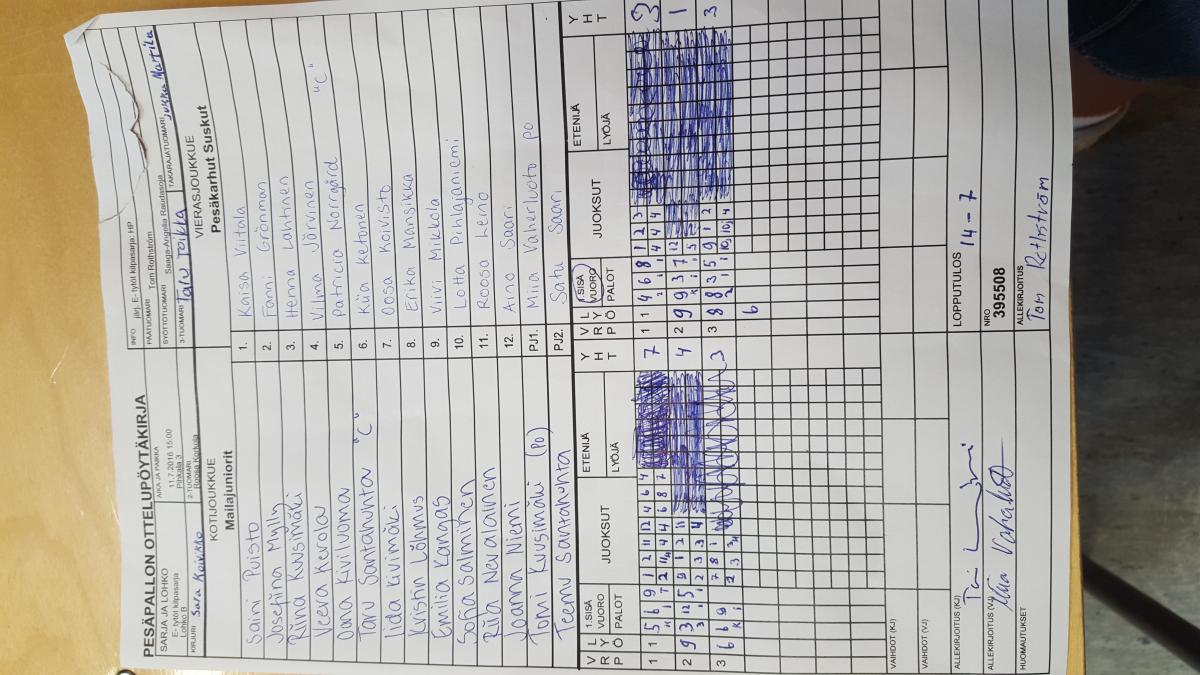 PESÄPALLON OTTELUPÖYTÄKIRJA
SARJA JA LOHKO
E- tytöt kilpasarja
Lohko B
AIKA JA PAIKKA
11.7.2016 15:00
Pihkala 3
INFO järj. E- tytöt kilpasarja: HP
PÄÄTUOMARI Tom Rothström
SYÖTTÖTUOMARI Saaga-Angelia Raudasoja
KIRJURI Sara Koivikko
2-TUOMARI
Roosa Korkola
3-TUOMARI Taru Toikka
TAKARAJATUOMARI Jukka Martila
KOTIJOUKKUE
Mailajuniorit
VIERASJOUKKUE
Pesäkarhut Suskut
Saini Puisto 1. Kaisa Viitala
Josefiina Mylly 2. Fanni Grönman
Riina Kuusimäki 3. Henna Lehtinen
Veera Kerola 4. Vilma Järvinen "C"
Oona Kiviluoma 5. Patricia Norrgård
Taru Santahuhta "C" 6. Kiia Ketonen
Iida Kivimäki 7. Oosa Koivisto
Kristin Lõhmus 8. Erika Mansikka
Emilia Kangas 9. Viivi Mikkola
Sofia Salminen 10. Lotta Pihlajaniemi
Riia Nevalainen 11. Roosa Leino
Joanna Niemi 12. Aino Saari
Tomi Kuusimäki (PO) PJ1. Miia Vaherluoto PO
Teemu Santahuhta PJ2. Satu Saari
V R P L Y Ö 1.SISÄ VUORO PALOT JUOKSUT ETENIJÄ LYÖJÄ Y H T
V R P L Y Ö 1.SISÄ VUORO PALOT JUOKSUT ETENIJÄ LYÖJÄ Y H T
1 1 5 6 9 1 2 11 12 4 6 4 7
1 1 4 6 8 1 2 3 3
2 9 3 12 5 9 1 2 11 4
2 9 9 3 7 12 1
3 6 6 9 7 8 1 3
3 8 8 3 5 9 1 2 3
6
VAIHDOT (KJ)
VAIHDOT (VJ)
ALLEKIRJOITUS (KJ)
LOPPUTULOS 14-7
ALLEKIRJOITUS (VJ)
NRO
395508
HUOMAUTUKSET
ALLEKIRJOITUS